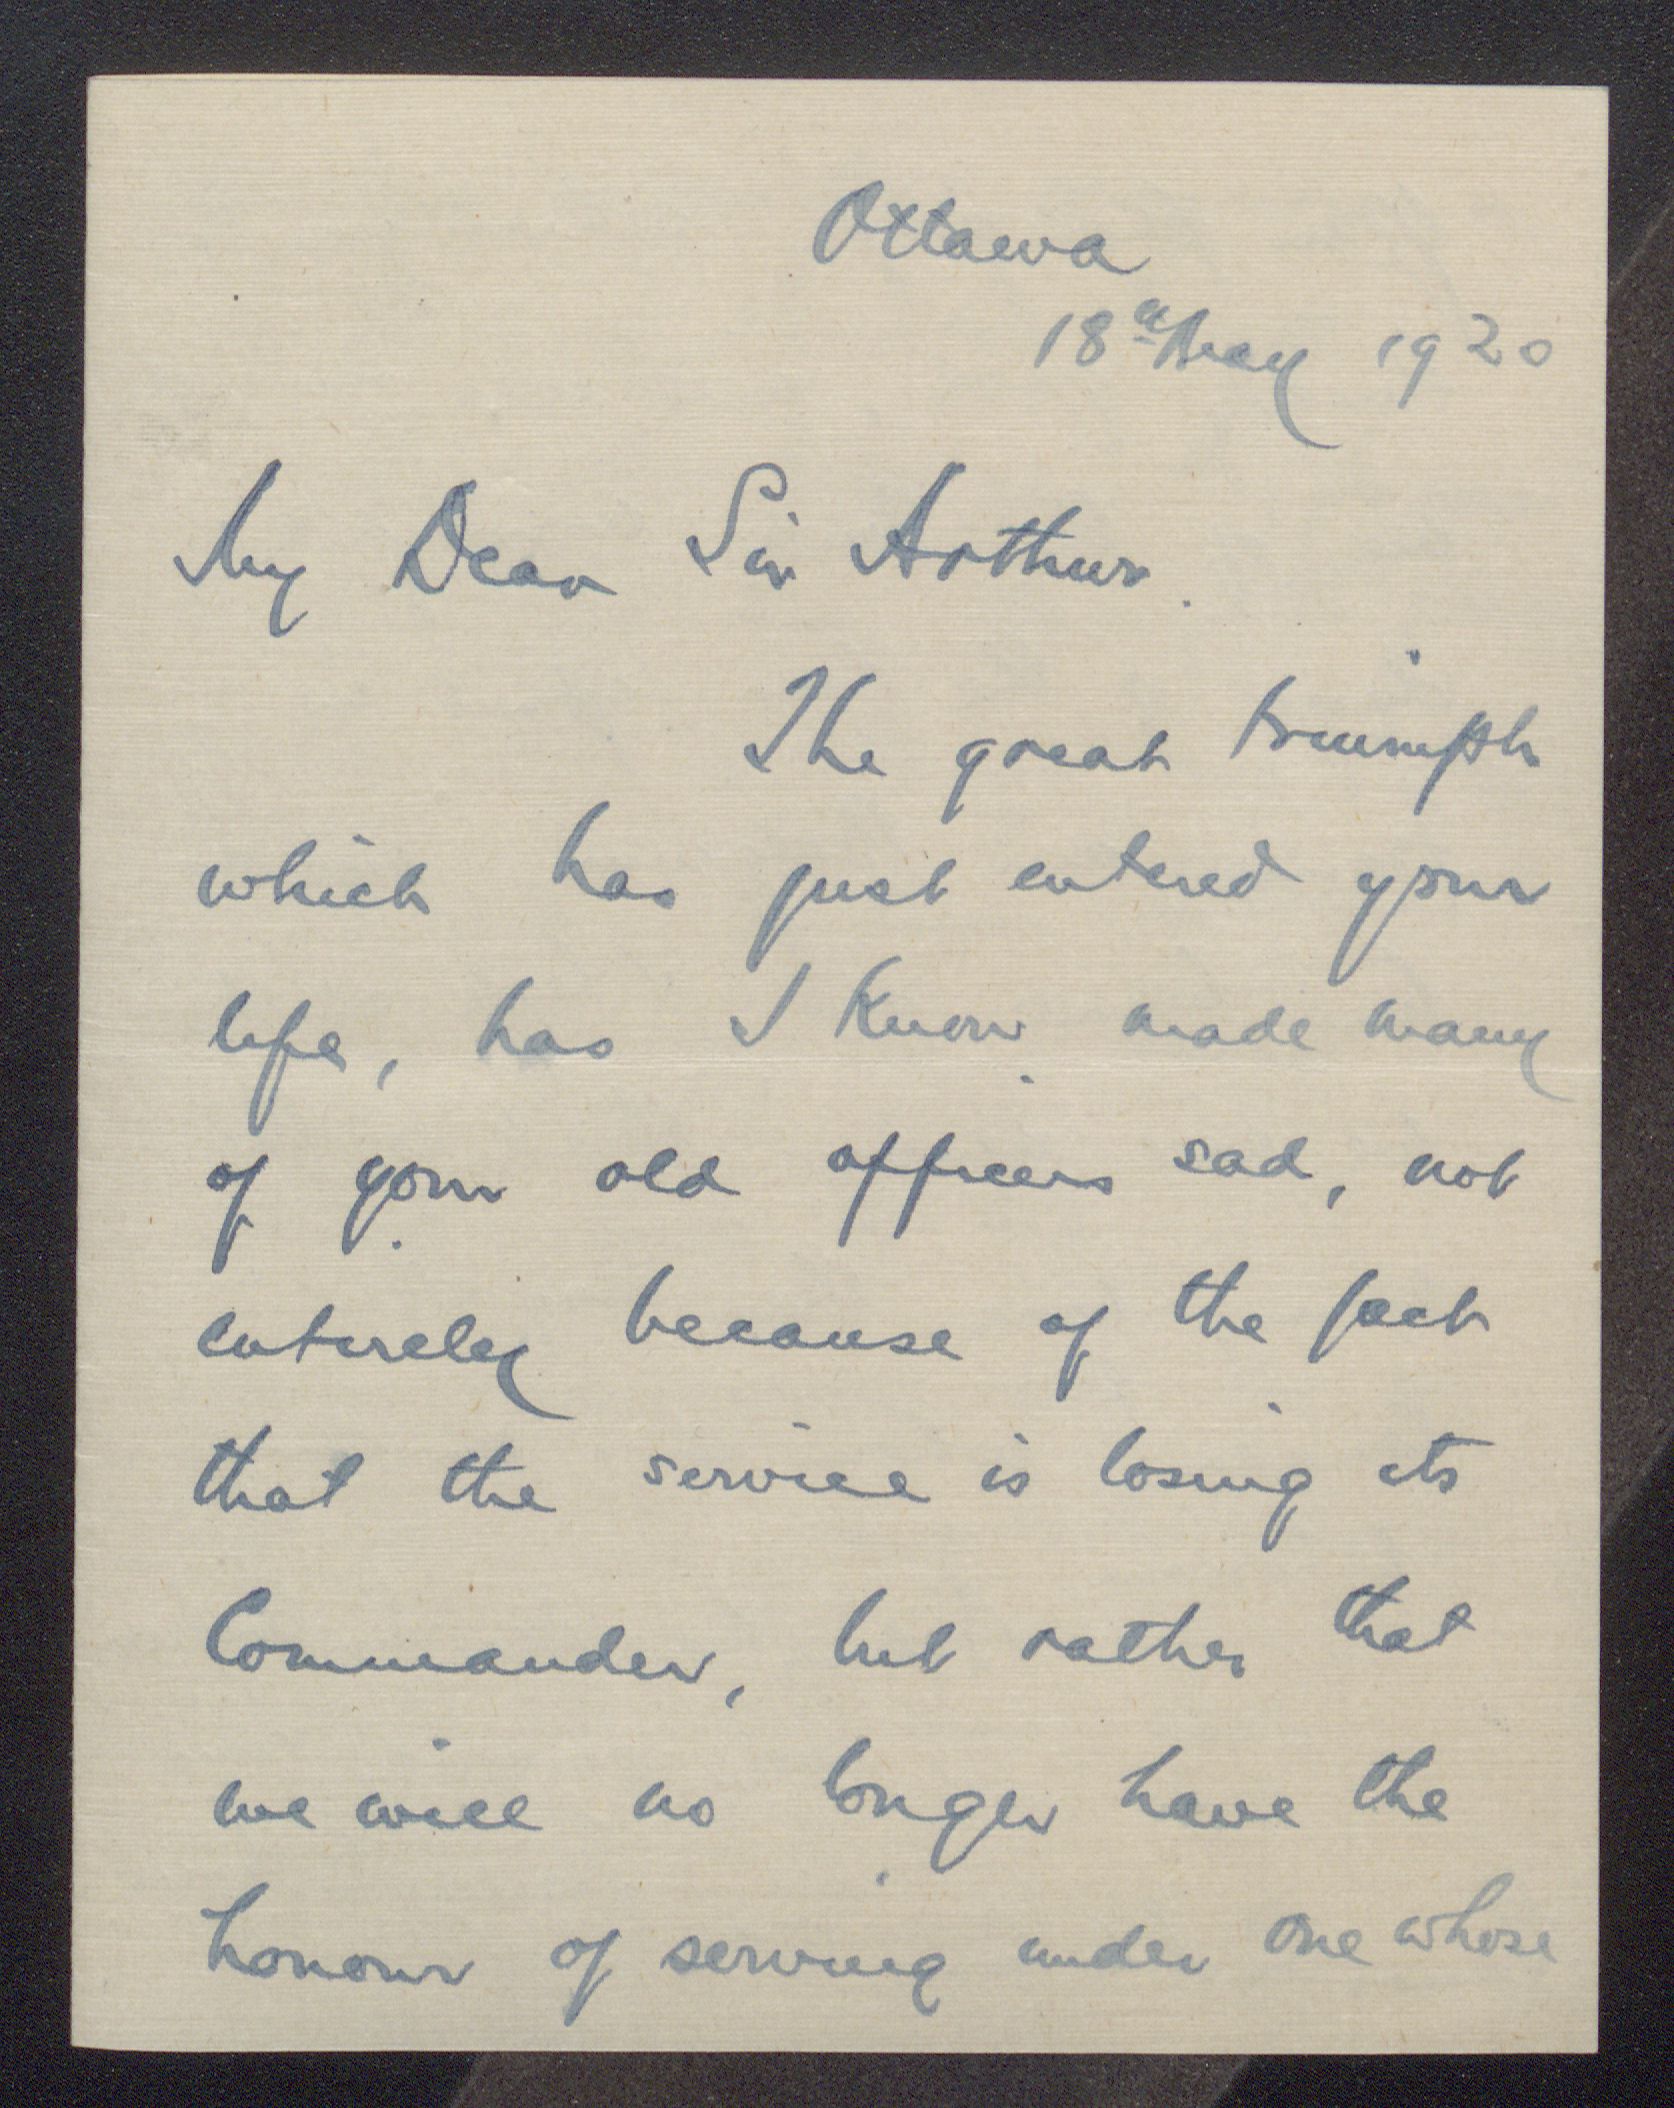 Ottawa
18th May 1920
My Dear Sir Arthur.
The great triumph
which has just entered your
life, has I know made many
of your old officers sad, not
entirely because of the fact
that the service is losing its
Commander, but rather that
we will no longer have the
honour of serving under one whose